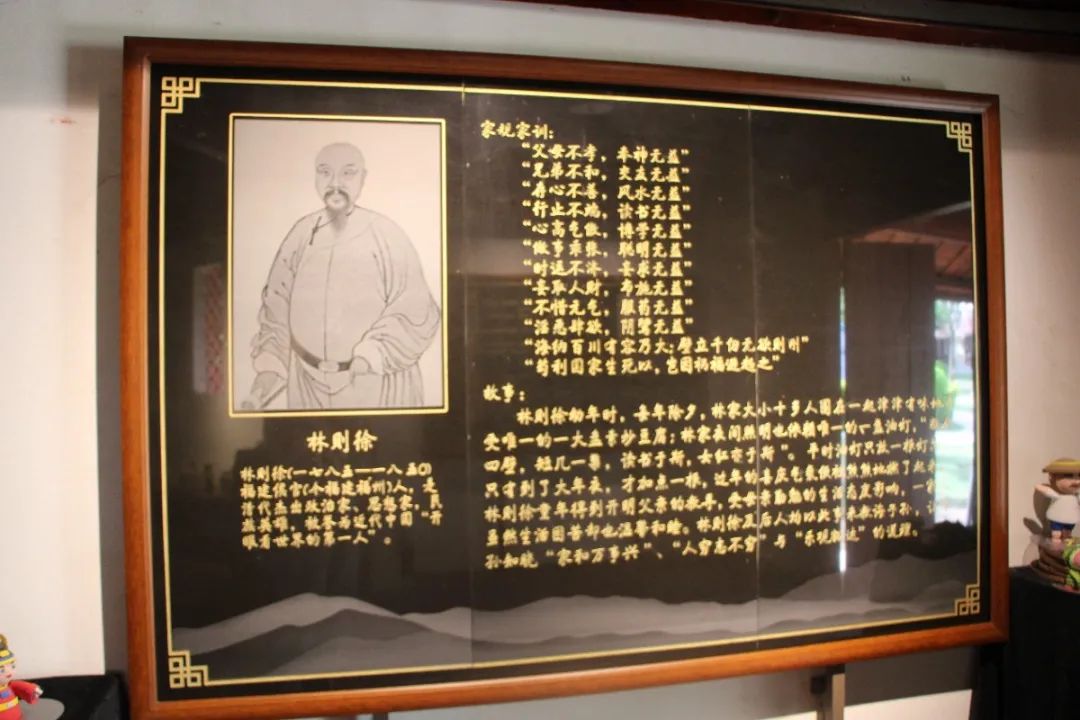 林则徐
林则徐(一七八五——一八五〇)
福建侯官(今福建福州)人，是
清代杰出政治家、思想家，民
族英雄，被誉为近代中国“开
眼看世界的第一人”。
家规家训：
“父母不孝，奉神无益”
“兄弟不和，交友无益”
“存心不善，风水无益”
“行止不端，读书无益”
“心高气傲，博学无益”
“做事乖张，聪明无益”
“时运不济，妄求无益”
“妄取人财，布施无益”
“不惜元气，服药无益”
“淫恶肆欲，阴骘无益”
“海纳百川有容乃大；壁立千仞无欲则刚”
“苟利国家生死以，岂因祸福避趋之”
故事：
林则徐幼年时，每年除夕，林家大小十多人围在一起津津有味地
受唯一的一大盂素炒豆腐；林家夜间照明也依赖唯一的一盏油灯，
四壁，短几一具，读书于斯，女红亦于斯”。平时油灯只放一根灯
只有到了大年夜，才加点一根，过年的喜庆气氛被熊熊地燃了起来
林则徐童年得到开明父亲的教导，受母亲勤勉的生活态度影响，一家
虽然生活困苦却也温馨和睦。林则徐及后人均以此事来教诲子孙，让
孙知晓“家和万事兴”、“人穷志不穷”与“乐观豁达”的道理。